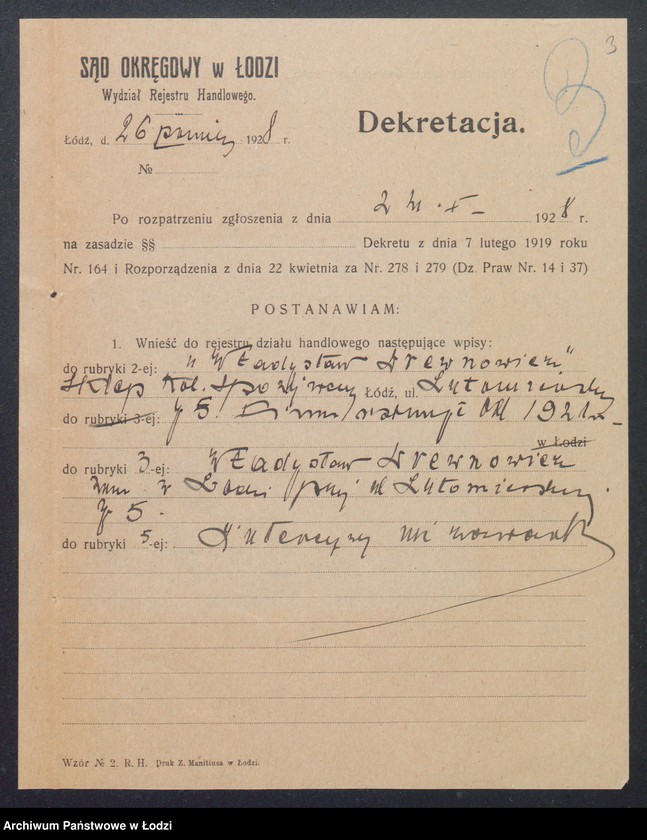 3
SĄD OKRĘGOWY w ŁODZI
Wydział Rejestru Handlowego.
Łódź, d. 26 1928 r.
Dekretacja.
№
Po rozpatrzeniu zgłoszenia z dnia X 1928 r.
na zasadzie §§ Dekretu z dnia 7 lutego 1919 roku
Nr. 164 i Rozporządzenia z dnia 22 kwietnia za Nr. 278 i 279 (Dz. Praw Nr. 14 i 37)
POSTANAWIAM:
1. Wnieść do rejestru działu handlowego następujące wpisy:
do rubryki 2-ej: „Władysław Drewnowicz”
Sklep kol. spożywczy Łódź, ul. Lutomierska
do rubryki 3-ej: 5. Firma istnieje od 1921 r.
w Łodzi
do rubryki 3-ej: Władysław Drewnowicz
zam. w Łodzi przy ul Lutomierskiej
5.
do rubryki 5-ej: Intercyzy nie zawarł
Wzór № 2. R. H. Druk Z. Manitiusa w Łodzi.
Archiwum Państwowe w Łodzi